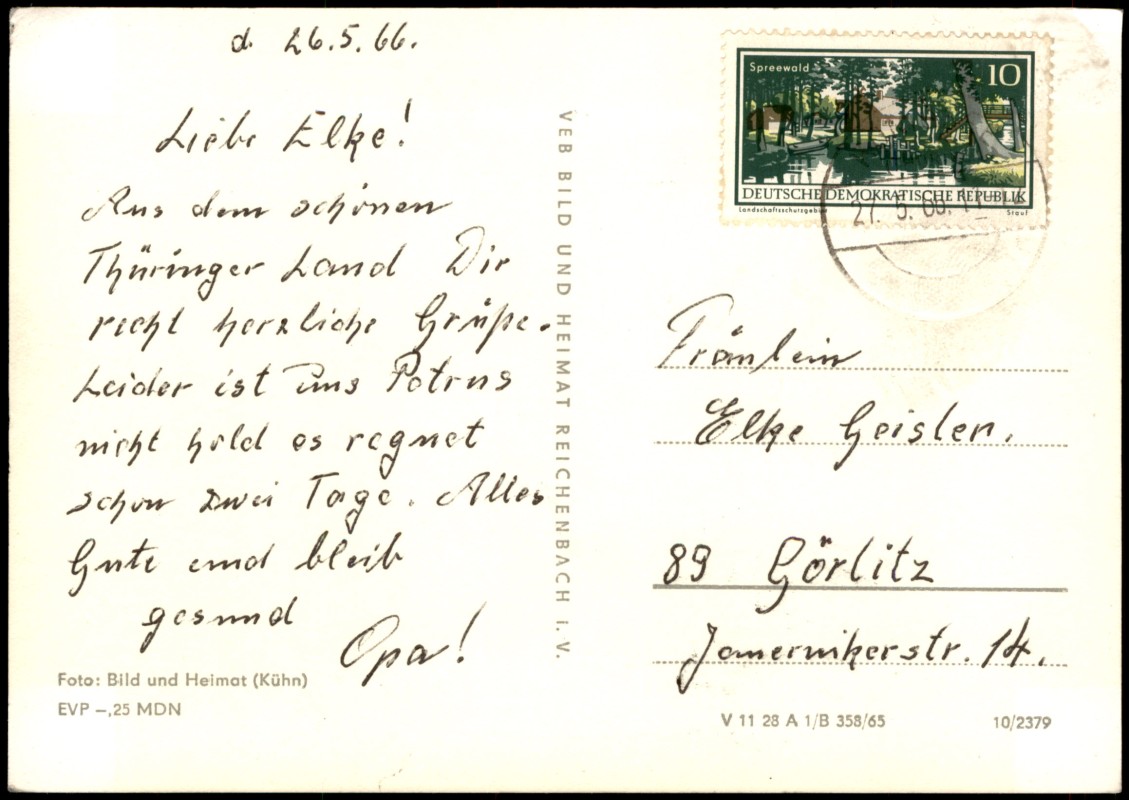 d. 26.5.66.
Liebe Elke!
Aus dem schönen
Thüringer Land Dir
recht herzliche Grüße.
Leider ist uns Petrus
nicht hold es regnet
schon zwei Tage. Alles
Gute und bleib
gesund
Opa!
Foto: Bild und Heimat (Kühn)
EVP –,25 MDN
VEB BILD UND HEIMAT REICHENBACH i. V.
Spreewald
10
DEUTSCHE DEMOKRATISCHE REPUBLIK
Landschaftsschutzgebiet
Stauf
27. 5. 66.
Fräulein
Elke Geisler.
89 Görlitz
Jauernikerstr. 14.
V 11 28 A 1/B 358/65
10/2379